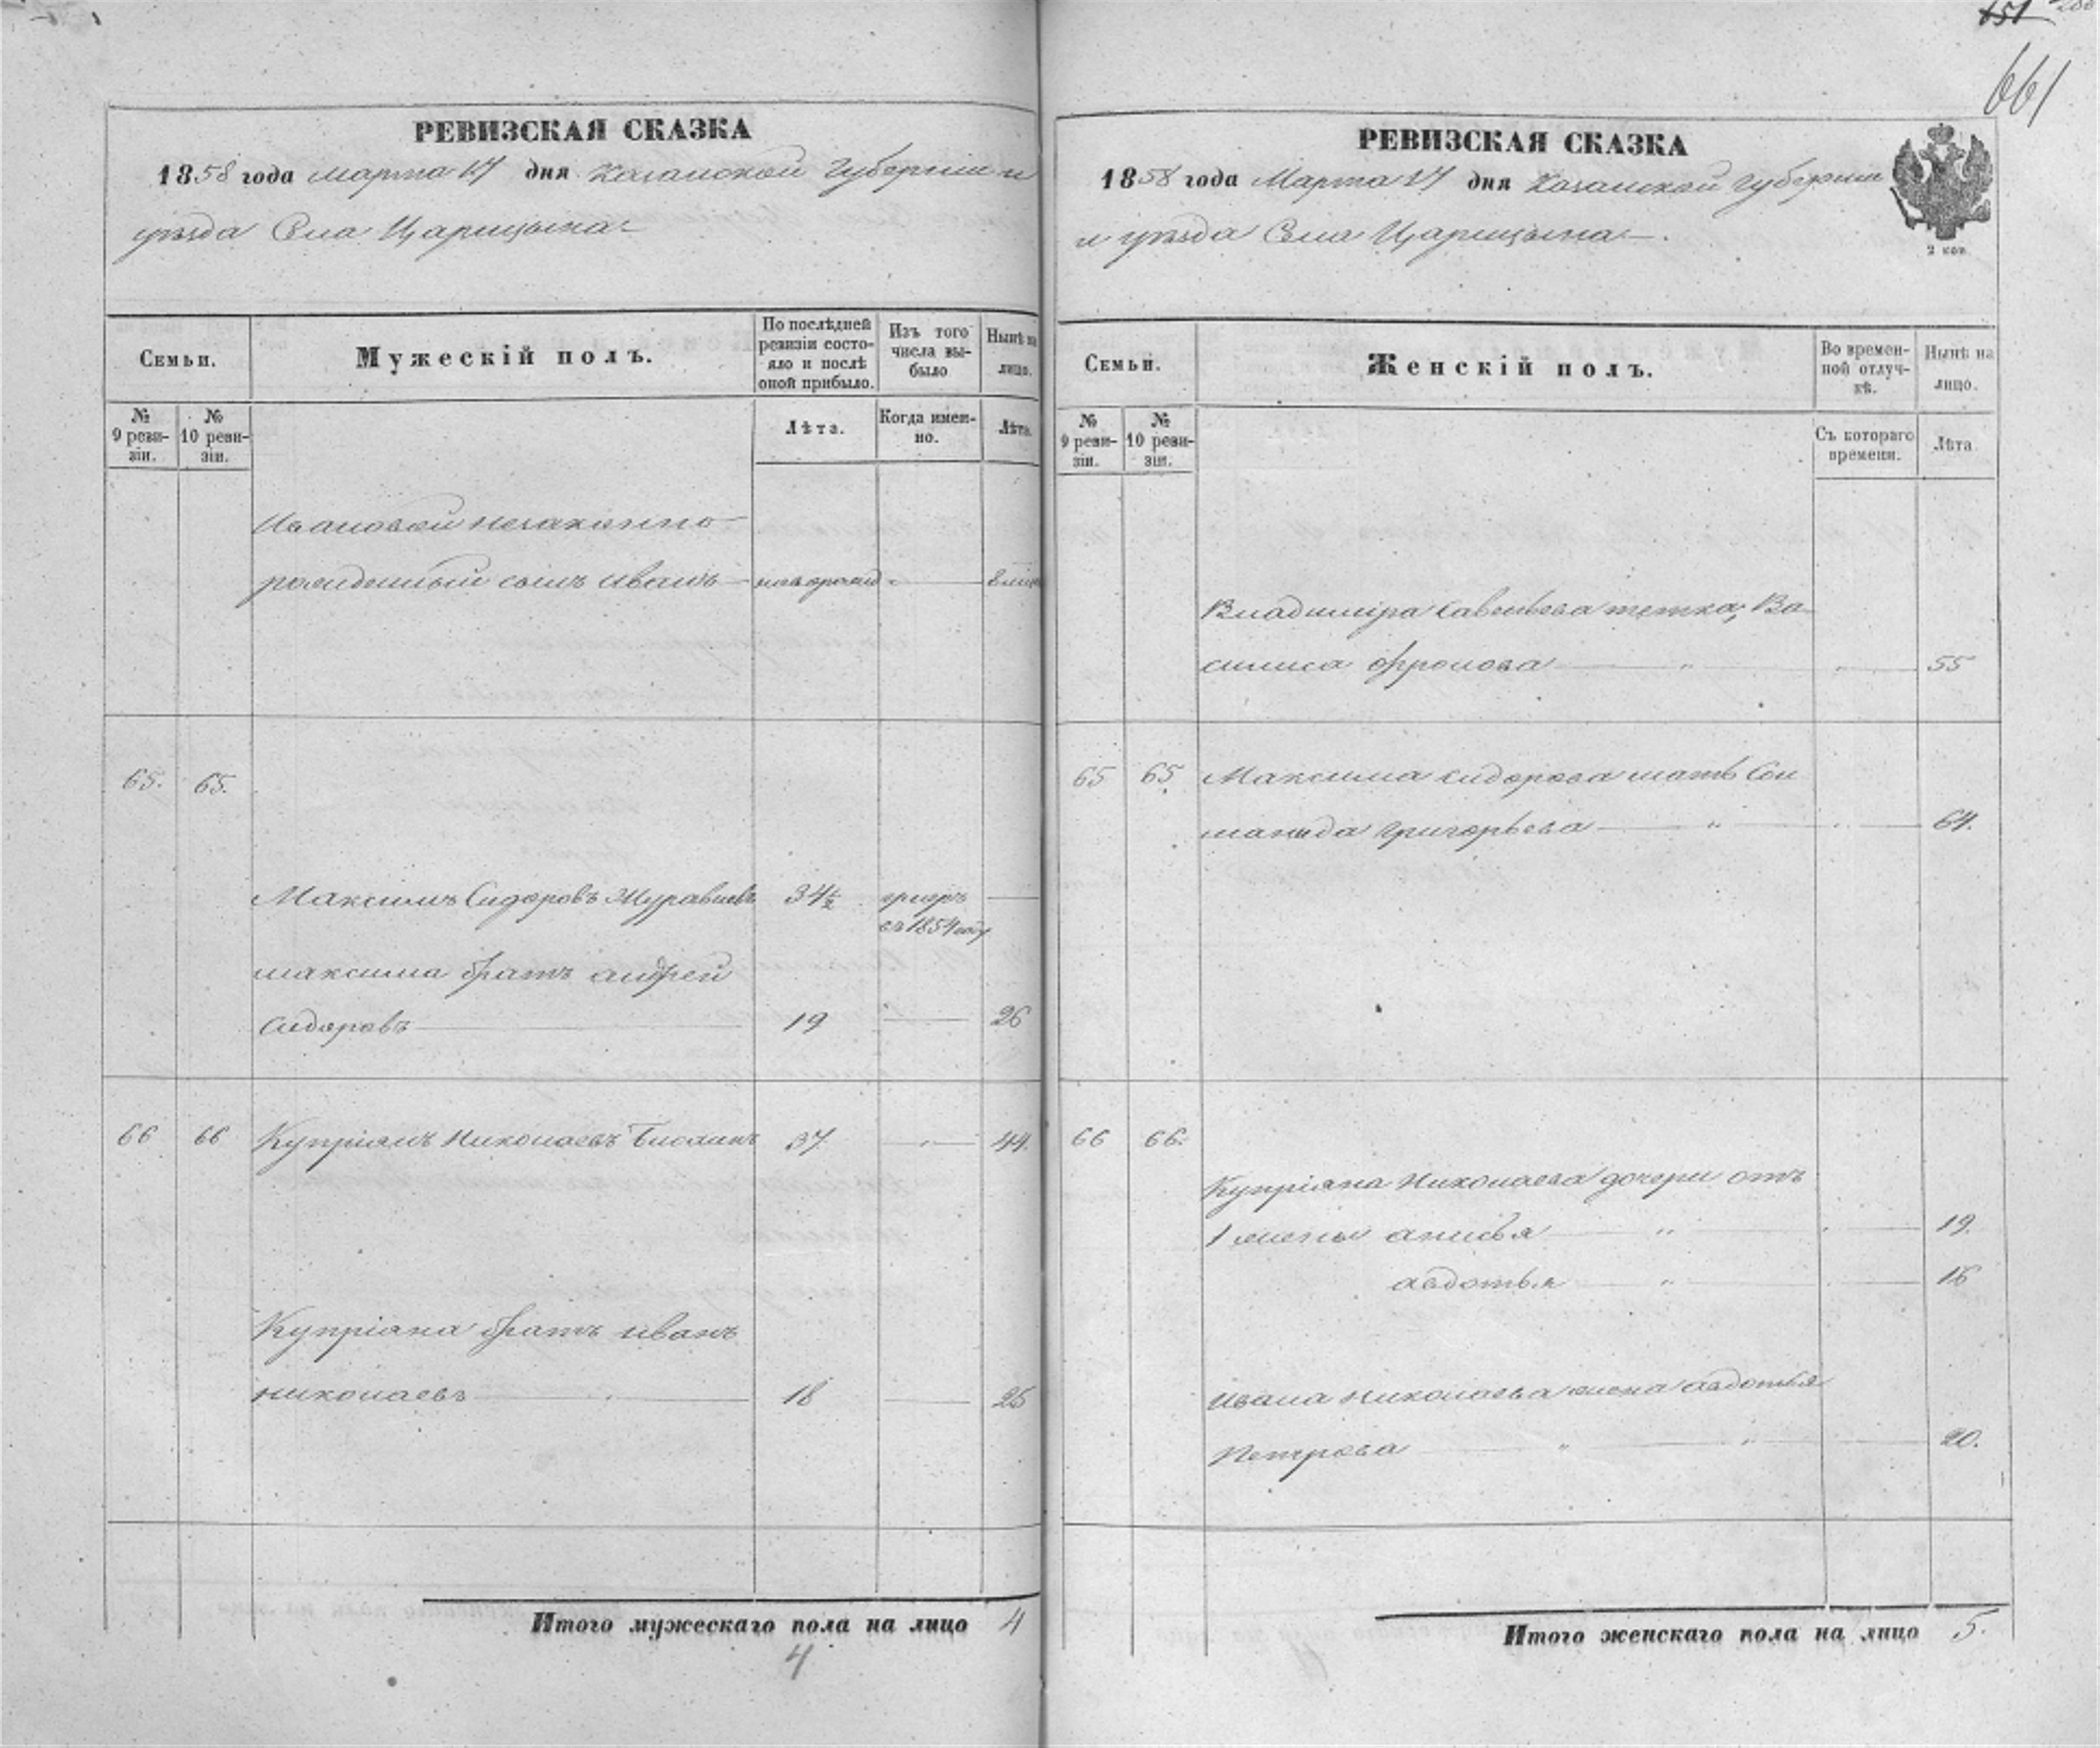 651
661
РЕВИЗСКАЯ СКАЗКА
1858 года марта 17 дня Казанской Губерніи и
уѣзда Села Царицына
Семьи.
Мужескій полъ.
По послѣдней ревизіи состояло и послѣ оной прибыло.
Изъ того числа выбыло
Нынѣ на лицо.
№ 9 ревизіи.
№ 10 ревизіи.
Лѣта.
Когда именно.
Лѣта.
Ивановой незаконно
рожденный сынъ Иванъ
65. 65.
Максимъ Сидоровъ Журавлевъ 34½
въ 1854 году
максима братъ андрей
Сидоровъ 19 26
66 66 Купріянъ Николаевъ 37 44.
Купріяна братъ иванъ
николаевъ 18 25
Итого мужескаго пола на лицо 4
4
РЕВИЗСКАЯ СКАЗКА
1858 года Марта 17 дня Казанской губерніи
и уѣзда Села Царицына
2 коп.
Семьи.
Женскій полъ.
Во временной отлучкѣ.
Нынѣ на лицо.
№ 9 ревизіи.
№ 10 ревизіи.
Съ котораго времени.
Лѣта.
Владиміра савельева тетка, Ва
силиса Фролова 55
65 65 Максима сидорова мать Соло
манида григорьева 64.
66 66.
Купріяна Николаева дочери отъ
1 жены анисья 19.
авдотья 16
Ивана николаева жена авдотья
Петрова 20.
Итого женскаго пола на лицо 5.